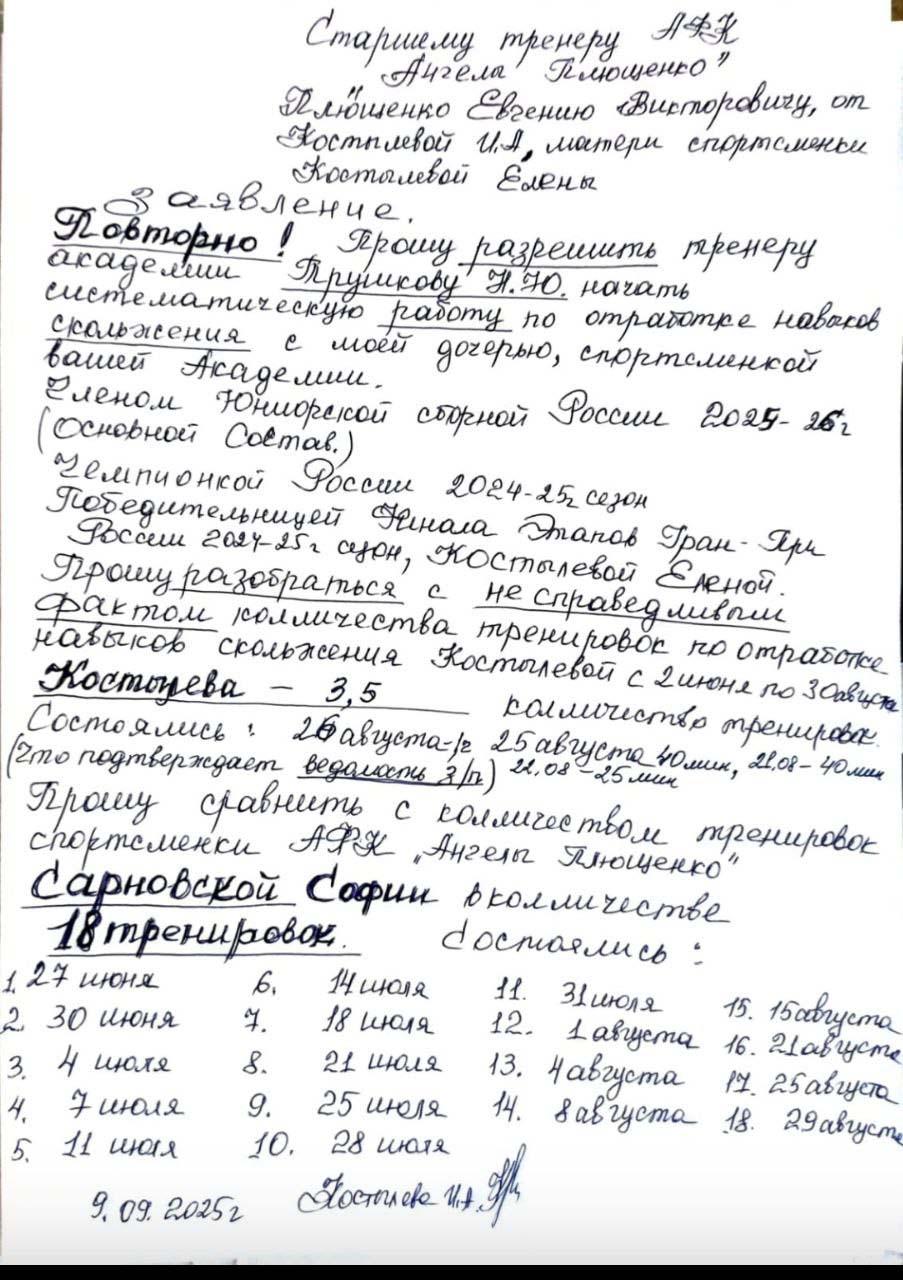 Старшему тренеру АФК
"Ангелы Плющенко"
Плющенко Евгению Викторовичу, от
Костылевой И.А, матери спортсменки
Костылевой Елены
Заявление.
Повторно! Прошу разрешить тренеру
академии Трушкову Н.Ю. начать
систематическую работу по отработке навыков
скольжения с моей дочерью, спортсменкой
вашей Академии.
Членом Юниорской сборной России 2025-26г
(Основной Состав.)
Чемпионкой России 2024-25г сезон
Победительницей Финала Этапов Гран-При
России 2024-25г сезон, Костылевой Еленой.
Прошу разобраться с не справедливым
фактом колличества тренировок по отработке
навыков скольжения Костылевой с 2 июня по 30 августа
Костылева - 3,5 колличество тренировок.
Состоялись: 26 августа-1г 25 августа 40 мин, 21,08-40 мин
(Что подтверждает ведомость З/п) 22,08-25 мин
Прошу сравнить с колличеством тренировок
спортсменки АФК „Ангелы Плющенко"
Сарновской Софии в колличестве
18 тренировок. Состоялись:
1. 27 июня 6. 14 июля 11. 31 июля 15. 15 августа
2. 30 июня 7. 18 июля 12. 1 августа 16. 21 августа
3. 4 июля 8. 21 июля 13. 4 августа 17. 25 августа
4. 7 июля 9. 25 июля 14. 8 августа 18. 29 августа
5. 11 июля 10. 28 июля
9.09.2025г Костылева И.А.